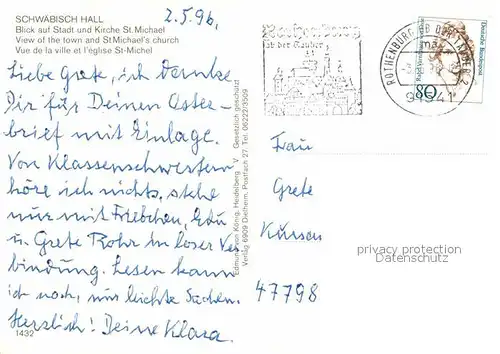 SCHWÄBISCH HALL
Blick auf Stadt und Kirche St. Michael
View of the town and St Michael's church
Vue de la ville et l'église St-Michel
2.5.96.
Liebe Grete, ich danke
Dir für Deinen Oster-
brief mit Einlage.
Von Klassenschwestern
höre ich nichts, stehe
nur mit Friebchen, Edu
u. Grete Rohr in loser Ver
bindung. Lesen kann
ich noch, nur leichte Sachen.
Herzlich! Deine Klara.
1432
Edmund von König, Heidelberg Gesetzlich geschützt
Verlag 6909 Dielheim, Postfach 27, Tel. 06222/3509
Rothenburg
ob der Tauber
ROTHENBURG OB DER TAUBER 2
91541
Deutsche Bundespost
80
Frau
Grete
47798
privacy protection
Datenschutz